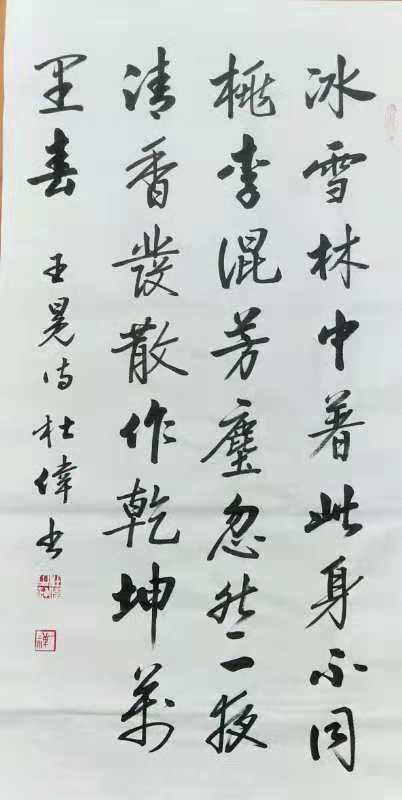 冰雪林中著此身不同
桃李混芳塵忽然一夜
清香發散作乾坤萬
里春 王冕詩杜偉書